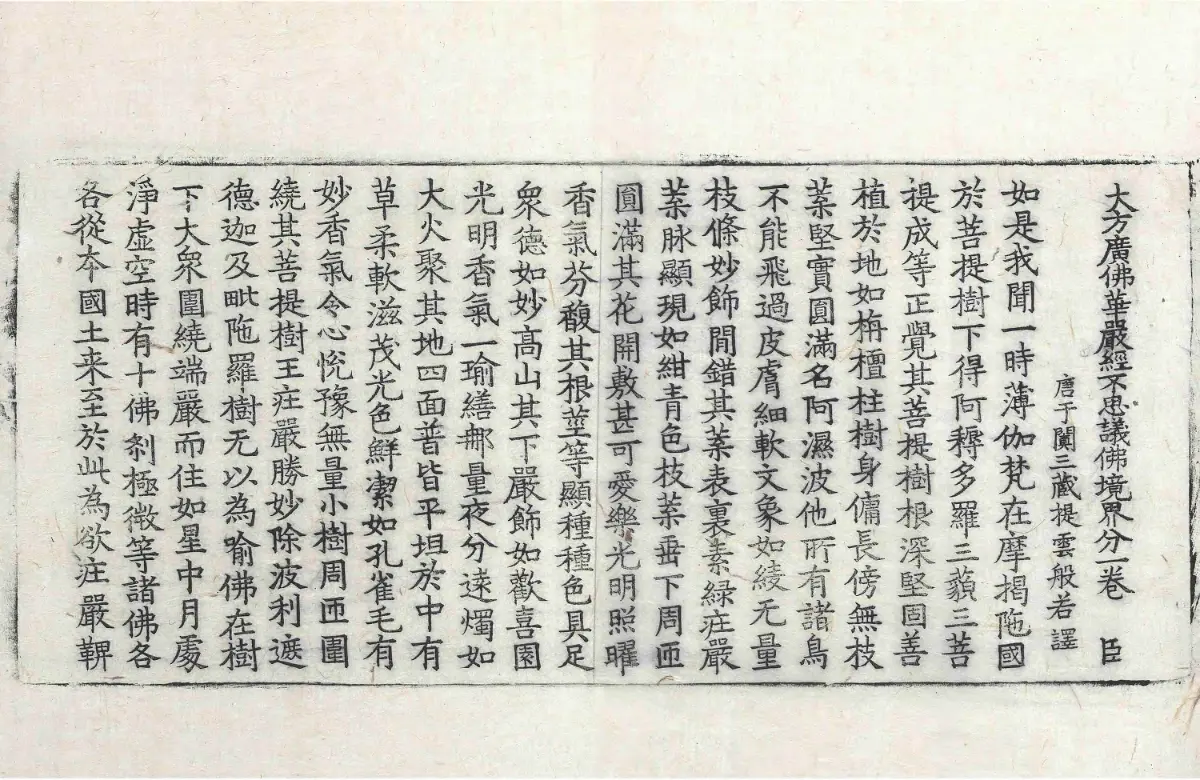 大方廣佛華嚴經不思議佛境界分一卷 臣
唐于闐三藏提雲般若譯
如是我聞一時薄伽梵在摩揭陁國
於菩提樹下得阿耨多羅三藐三菩
提成等正覺其菩提樹根深堅固善
植於地如栴檀柱樹身傭長傍無枝
葉堅實圓滿名阿濕波他所有諸鳥
不能飛過皮膚細軟文象如綾无量
枝條妙飾間錯其葉表裏素綠疘嚴
葉脉顯現如紺青色枝葉垂下周匝
圓滿其花開敷甚可愛樂光明照曜
香氣芬馥其根莖等顯種種色具足
衆德如妙高山其下嚴飾如歡喜園
光明香氣一瑜繕那量夜分遠燭如
大火聚其地四面普皆平坦於中有
草柔軟滋茂光色鮮潔如孔雀毛有
妙香氣令心恱豫無量小樹周匝圍
繞其菩提樹王疘嚴勝妙除波利遮
德迦及毗陁羅樹无以為喻佛在樹
下大衆圍繞端嚴而住如星中月處
淨虛空時有十佛剎極微等諸佛各
各從夲國土来至於此為欲疘嚴鞞